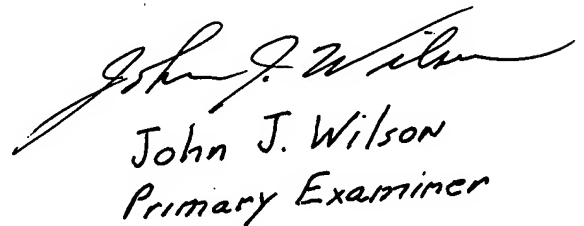 John J. Wilson
John J. Wilson
Primary Examiner